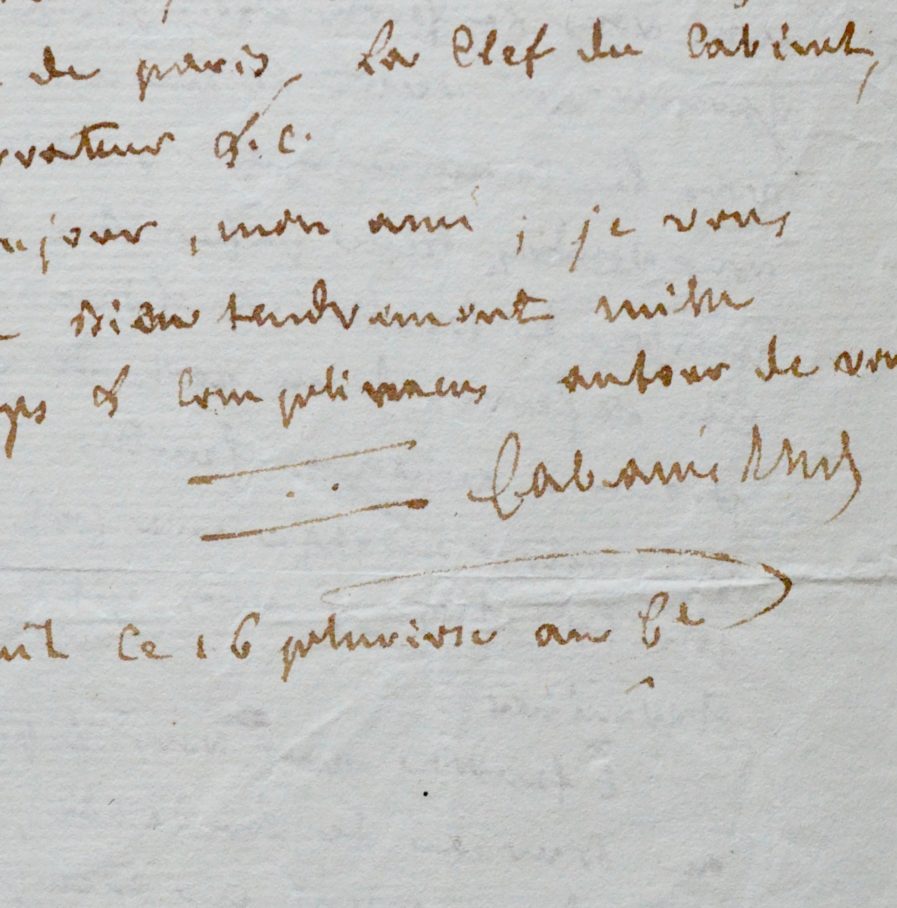 de paris, La Clef du Cabinet,
rvateur &.c.
njour, mon ami ; je vous
bien tendrement mille
& Complimens autour de vou
Cabanis
ce 16 pluviose an 6e